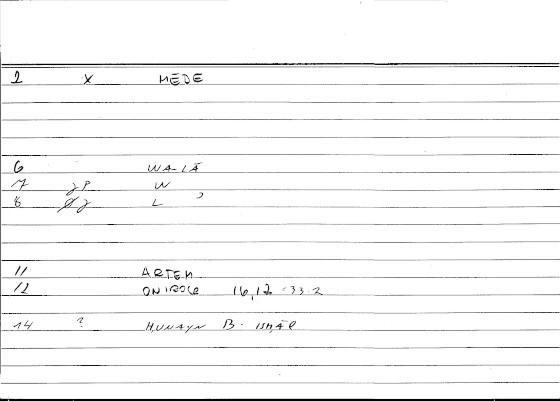 2 X MEDE
6 WA-LĀ
7 JP W
8 J L ʾ
11 ARTEM
12 ONIROC 16,12 = 33.2
14 ? HUNAYN B. ISHĀQ